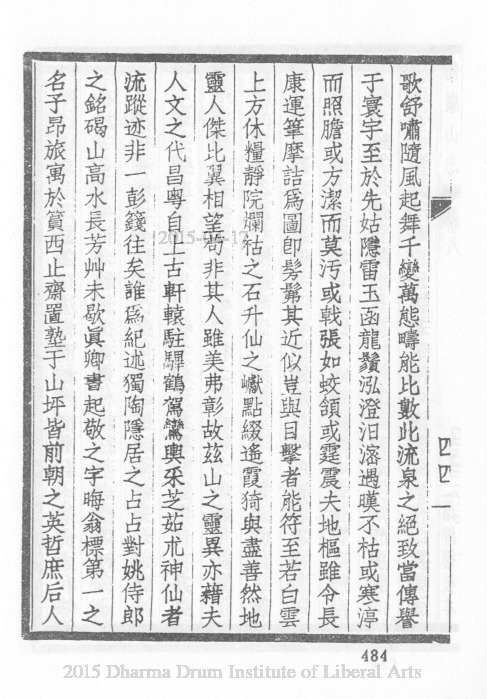 歌舒嘯隨風起舞千變萬態疇能比數此流泉之絕致當傳譽
于寰宇至於先姑隱雷玉函龍鬚泓澄汩㵽遇暵不枯或寒渟
而照膽或方潔而莫汚或戟張如蛟頷或霆震夫地樞雖令長
康運筆摩詰爲圖卽髣髴其近似豈與目擊者能符至若白雲
上方休糧靜院爛枯之石升仙之巘點綴遙霞猗與盡善然地
靈人傑比翼相望苟非其人雖美弗彰故茲山之靈異亦藉夫
人文之代昌粵自上古軒轅駐驆鶴駕鸞輿采芝茹朮神仙者
流蹤迹非一彭籛往矣誰爲紀述獨陶隱居之占占對姚侍郎
之銘碣山高水長芳艸未歇眞卿書起敬之字晦翁標第一之
名子昂旅寓於篔西止齋置塾于山坪皆前朝之英哲庶后人
四四一
484
2015-05-12
2015 Dharma Drum Institute of Liberal Arts